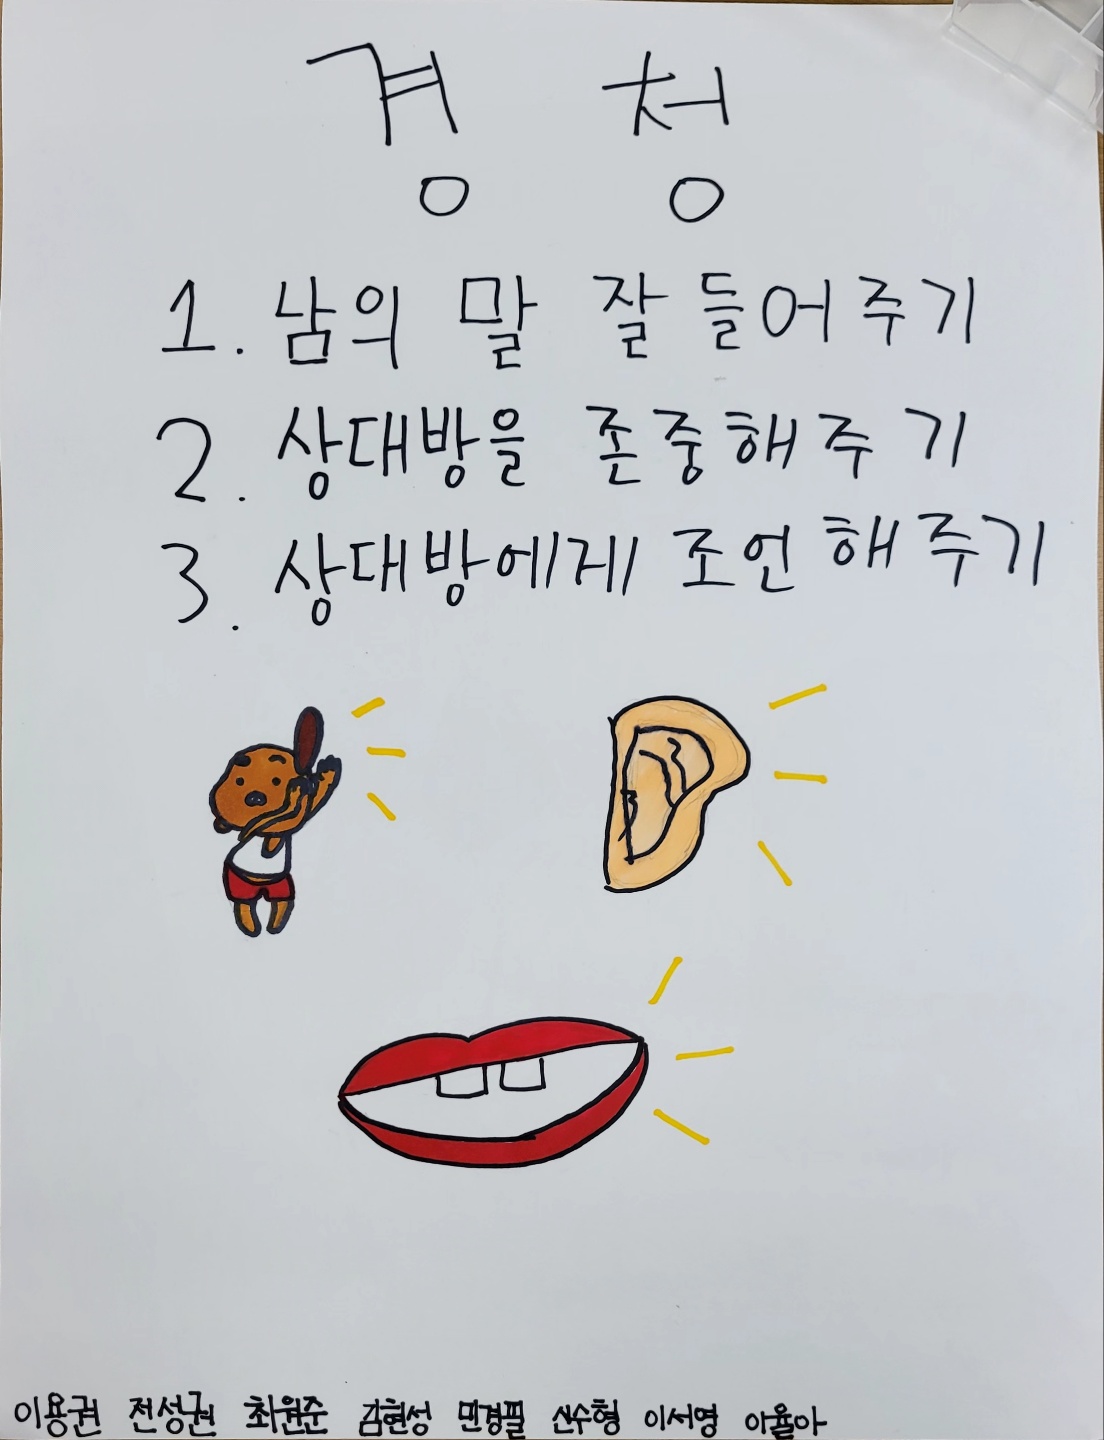 경청
1. 남의 말 잘 들어주기
2. 상대방을 존중해주기
3. 상대방에게 조언해주기
이용권 전성권 최원준 김현성 민경필 신수형 이서영